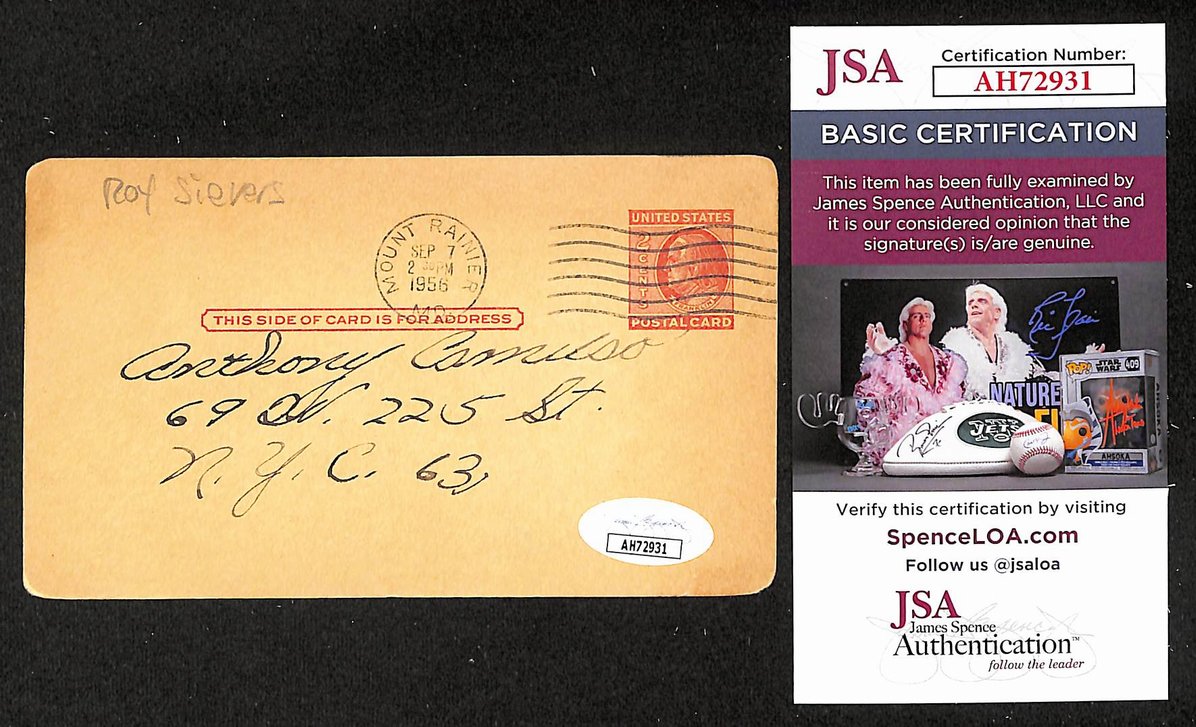 Roy Sievers
MOUNT RAINIER
SEP 7
2 30 PM
1956
MD.
UNITED STATES
2 CENTS
FRANKLIN
POSTAL CARD
THIS SIDE OF CARD IS FOR ADDRESS
Anthony Camuso
69 W. 225 St.
N. Y. C. 63,
AH72931
JSA
Certification Number:
AH72931
BASIC CERTIFICATION
This item has been fully examined by
James Spence Authentication, LLC and
it is our considered opinion that the
signature(s) is/are genuine.
NATURE
JETS
POP!
STAR WARS
409
AHSOKA
Verify this certification by visiting
SpenceLOA.com
Follow us @jsaloa
JSA
James Spence
Authentication™
follow the leader